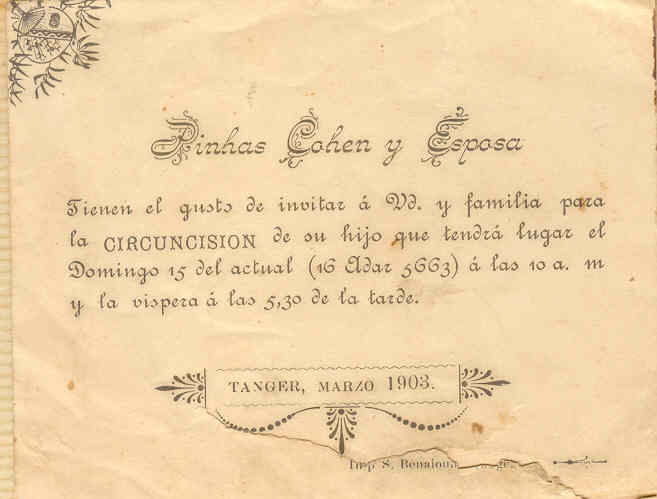 Pinhas Cohen y Esposa
Tienen el gusto de invitar á Vd. y familia para
la CIRCUNCISION de su hijo que tendrá lugar el
Domingo 15 del actual (16 Adar 5663) á las 10 a. m
y la vispera á las 5,30 de la tarde.
TANGER, MARZO 1903.
Imp. S. Benaioun